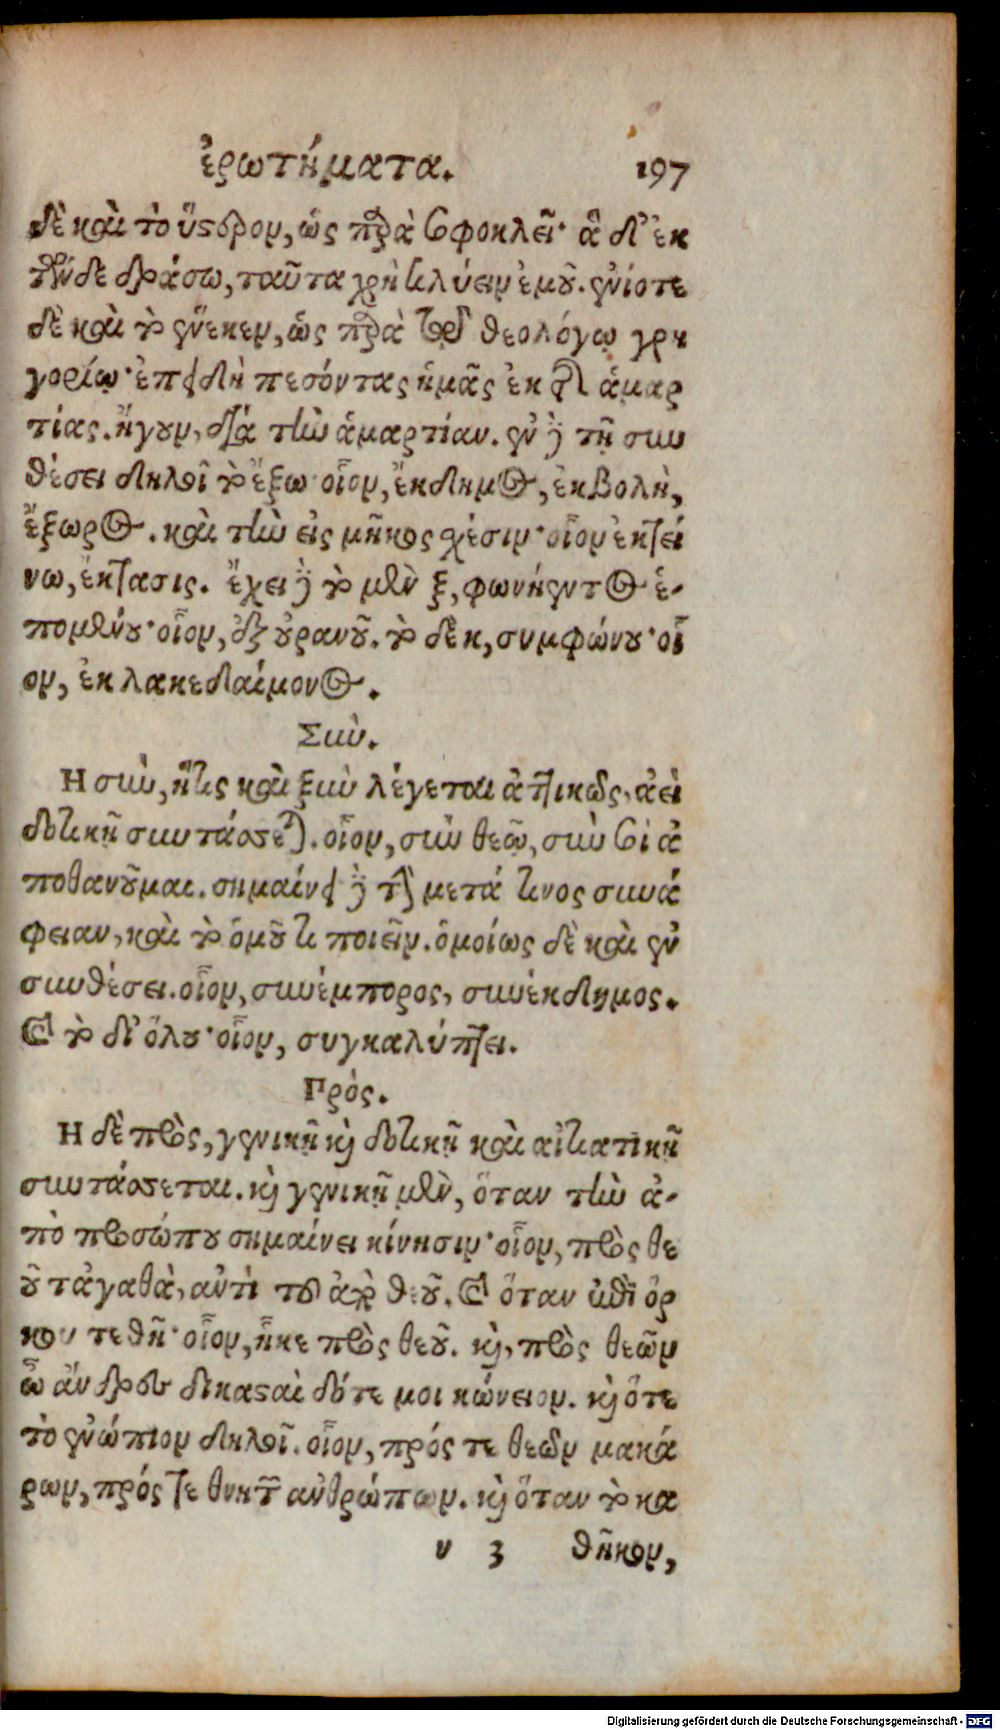 ἐρωτήματα. 197
δὲ καὶ τὸ ὕστερον, ὡς παρὰ σοφοκλεῖ· ἃ δ' ἐκ
τῶνδε δράσω, ταῦτα χρὴ κλύειν ἐμοῦ. ἐνίοτε
δὲ καὶ τὸ ἕνεκεν, ὡς παρὰ τῷ θεολόγῳ γρη
γορίῳ· ἐπεὶ δὴ πεσόντας ἡμᾶς ἐκ τῆς ἁμαρ
τίας. ἤγουν, διὰ τὴν ἁμαρτίαν. ἐν δὲ τῇ συν
θέσει δηλοῖ τὸ ἔξω· οἷον, ἔκδημος, ἐκβολὴ,
ἔξωρος. καὶ τὴν εἰς μῆκος χέσιν· οἷον ἐκτεί
νω, ἔκτασις. ἔχει δὲ τὸ μὲν ξ, φωνήεντος ἑ-
πομένου· οἷον, ἐξ οὐρανοῦ. τὸ δὲ κ, συμφώνου· οἷ
ον, ἐκ λακεδαίμονος.
Σὺν.
Η σὺν, ἥτις καὶ ξὺν λέγεται ἀττικῶς, ἀεὶ
δοτικῇ συντάσσεται. οἷον, σὺν θεῷ, σὺν σοὶ ἀ
ποθανοῦμαι. σημαίνει δὲ τὴν μετά τινος συνά
φειαν, καὶ τὸ ὁμοῦ τι ποιεῖν. ὁμοίως δὲ καὶ ἐν
συνθέσει. οἷον, συνέμπορος, συνέκδημος.
καὶ τὸ δι' ὅλου· οἷον, συγκαλύπτει.
Πρός.
Η δὲ πρὸς, γενικῇ καὶ δοτικῇ καὶ αἰτιατικῇ
συντάσσεται. καὶ γενικῇ μὲν, ὅταν τὴν ἀ-
πὸ προσώπου σημαίνει κίνησιν· οἷον, πρὸς θε
οῦ τἀγαθὰ, αὐτὶ τοῦ ἀπὸ θεοῦ. καὶ ὅταν ἐπὶ ὅρ
κου τεθῇ· οἷον, ἧκε πρὸς θεοῦ. καὶ, πρὸς θεῶν
ὦ ἄνδρες δικασταὶ δότε μοι κώνειον. καὶ ὅτε
τὸ ἐνώπιον δηλοῖ. οἷον, πρός τε θεῶν μακά
ρων, πρός τε θνητῶν ἀνθρώπων. καὶ ὅταν τὸ κα
ν 3 θῆκον,
Digitalisierung gefördert durch die Deutsche Forschungsgemeinschaft - DFG